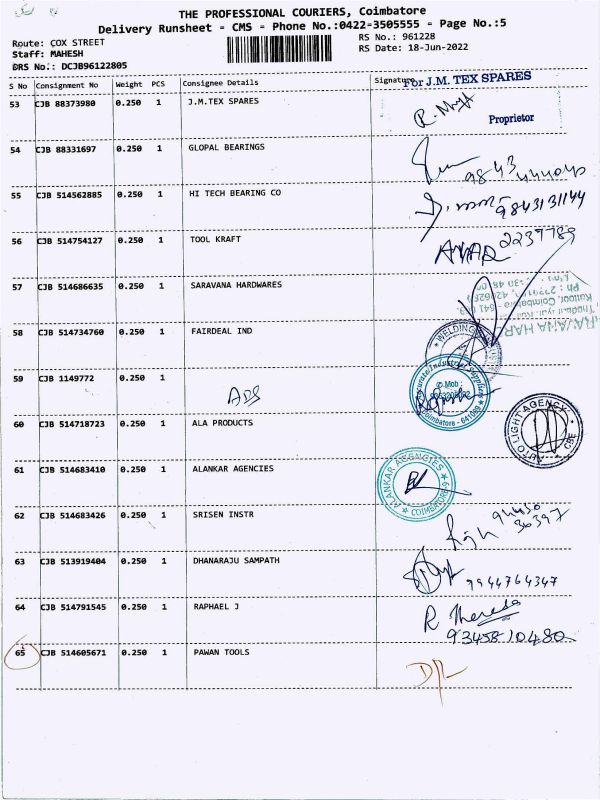 THE PROFESSIONAL COURIERS, Coimbatore
Delivery Runsheet - CMS - Phone No.:0422-3505555 - Page No.:5
Route: COX STREET
RS No.: 961228
Staff: MAHESH
RS Date: 18-Jun-2022
DRS No.: DCJB96122805
S No Consignment No Weight PCS Consignee Details Signature
For J.M. TEX SPARES
53 CJB 88373980 0.250 1 J.M.TEX SPARES
Proprietor
54 CJB 88331697 0.250 1 GLOPAL BEARINGS
55 CJB 514562885 0.250 1 HI TECH BEARING CO
9843131144
56 CJB 514754127 0.250 1 TOOL KRAFT
2239789
57 CJB 514686635 0.250 1 SARAVANA HARDWARES
58 CJB 514734760 0.250 1 FAIRDEAL IND
WELDING
59 CJB 1149772 0.250 1
ADS
60 CJB 514718723 0.250 1 ALA PRODUCTS
AUTO LIGHT AGENCY CBE
61 CJB 514683410 0.250 1 ALANKAR AGENCIES
ALANKAR AGENCIES COIMBATORE
62 CJB 514683426 0.250 1 SRISEN INSTR
63 CJB 513919404 0.250 1 DHANARAJU SAMPATH
9944764347
64 CJB 514791545 0.250 1 RAPHAEL J
9345810480
65 CJB 514605671 0.250 1 PAWAN TOOLS